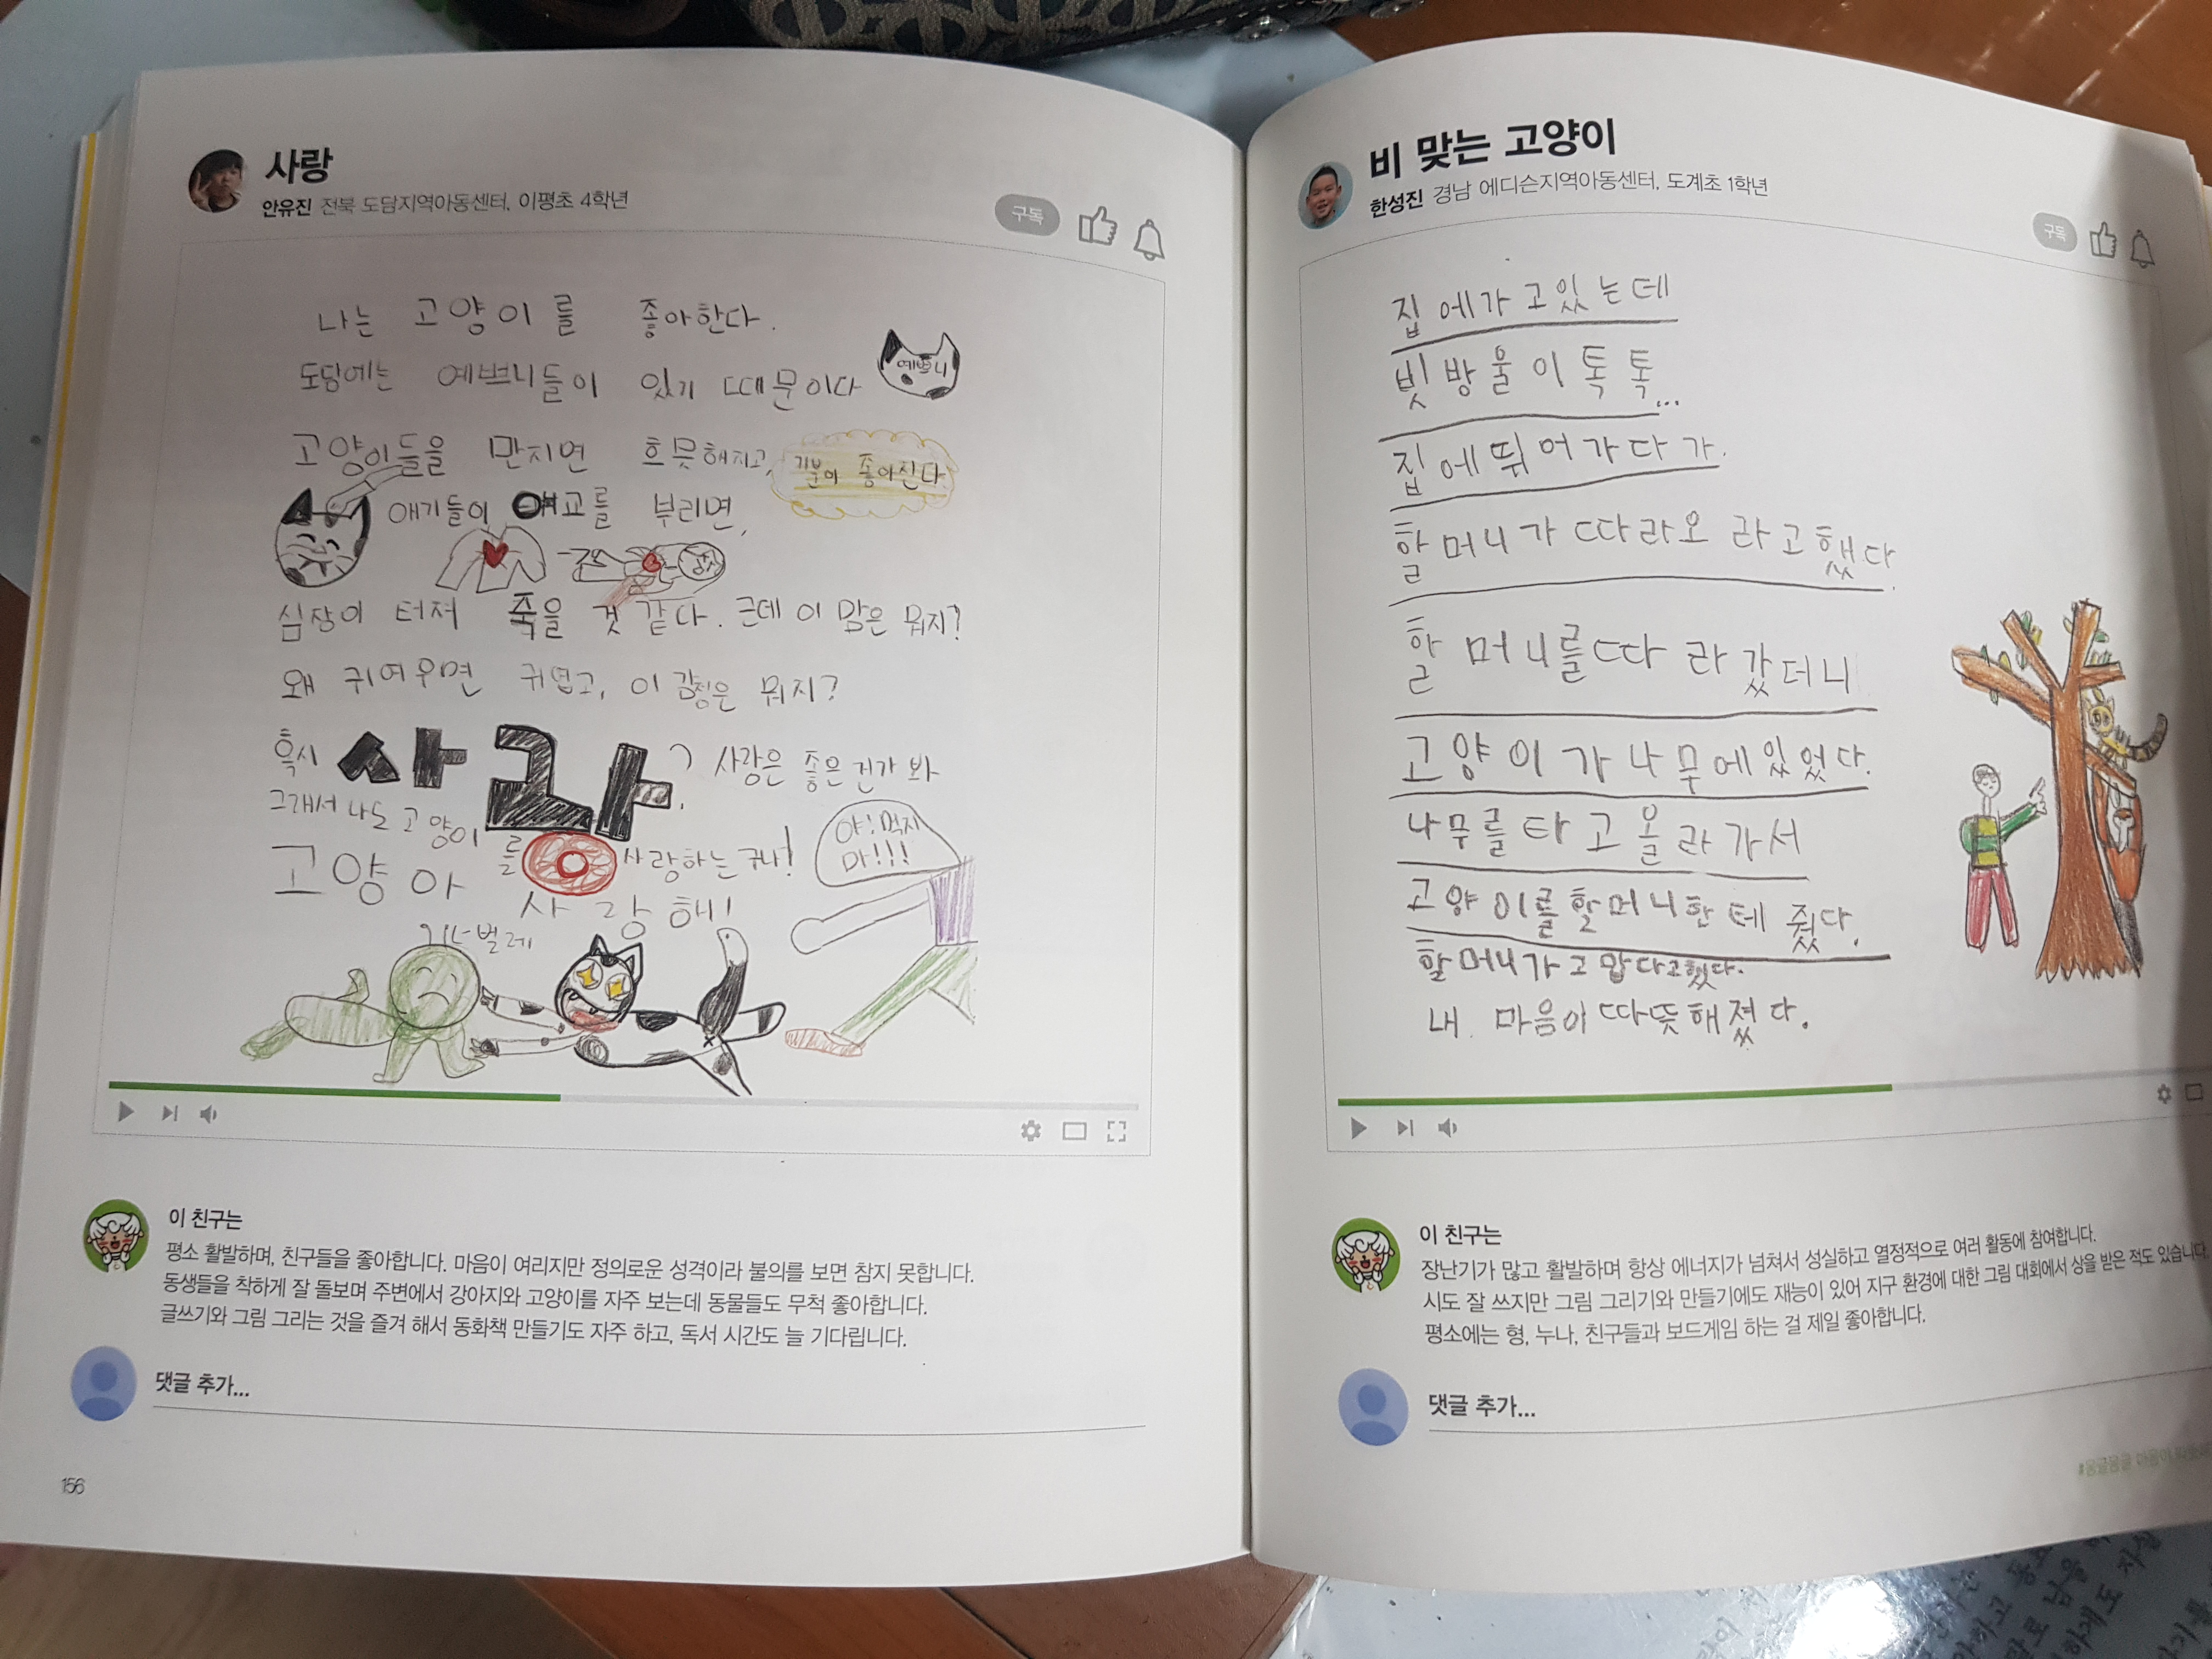 사랑
안유진 전북 도담지역아동센터, 이평초 4학년
구독
나는 고양이를 좋아한다.
도담에는 예쁘니들이 있기 때문이다
예쁘니
고양이들을 만지면 흐뭇해지고, 기분이 좋아진다
애기들이 애교를 부리면,
심장이 터저 죽을 것 같다. 근데 이 맘은 뭐지?
왜 귀여우면 귀엽고, 이 감정은 뭐지?
혹시 사랑? 사랑은 좋은 건가 봐
그래서 나는 고양이를 사랑하는구나!
고양아 사랑해!
야! 먹지
마!!!
벌레
이 친구는
평소 활발하며, 친구들을 좋아합니다. 마음이 여리지만 정의로운 성격이라 불의를 보면 참지 못합니다.
동생들을 착하게 잘 돌보며 주변에서 강아지와 고양이를 자주 보는데 동물들도 무척 좋아합니다.
글쓰기와 그림 그리는 것을 즐겨 해서 동화책 만들기도 자주 하고, 독서 시간도 늘 기다립니다.
댓글 추가...
156
비 맞는 고양이
한성진 경남 에디슨지역아동센터, 도계초 1학년
구독
집에가고있는데
빗방울이톡톡...
집에뛰어가다가.
할머니가 따라오라고했다.
할머니를따라갔더니
고양이가나무에있었다.
나무를타고올라가서
고양이를할머니한테 줬다.
할머니가고맙다고했다.
내 마음이 따뜻해졌다.
이 친구는
장난기가 많고 활발하며 항상 에너지가 넘쳐서 성실하고 열정적으로 여러 활동에 참여합니다.
시도 잘 쓰지만 그림 그리기와 만들기에도 재능이 있어 지구 환경에 대한 그림 대회에서 상을 받은 적도 있습니다.
평소에는 형, 누나, 친구들과 보드게임 하는 걸 제일 좋아합니다.
댓글 추가...